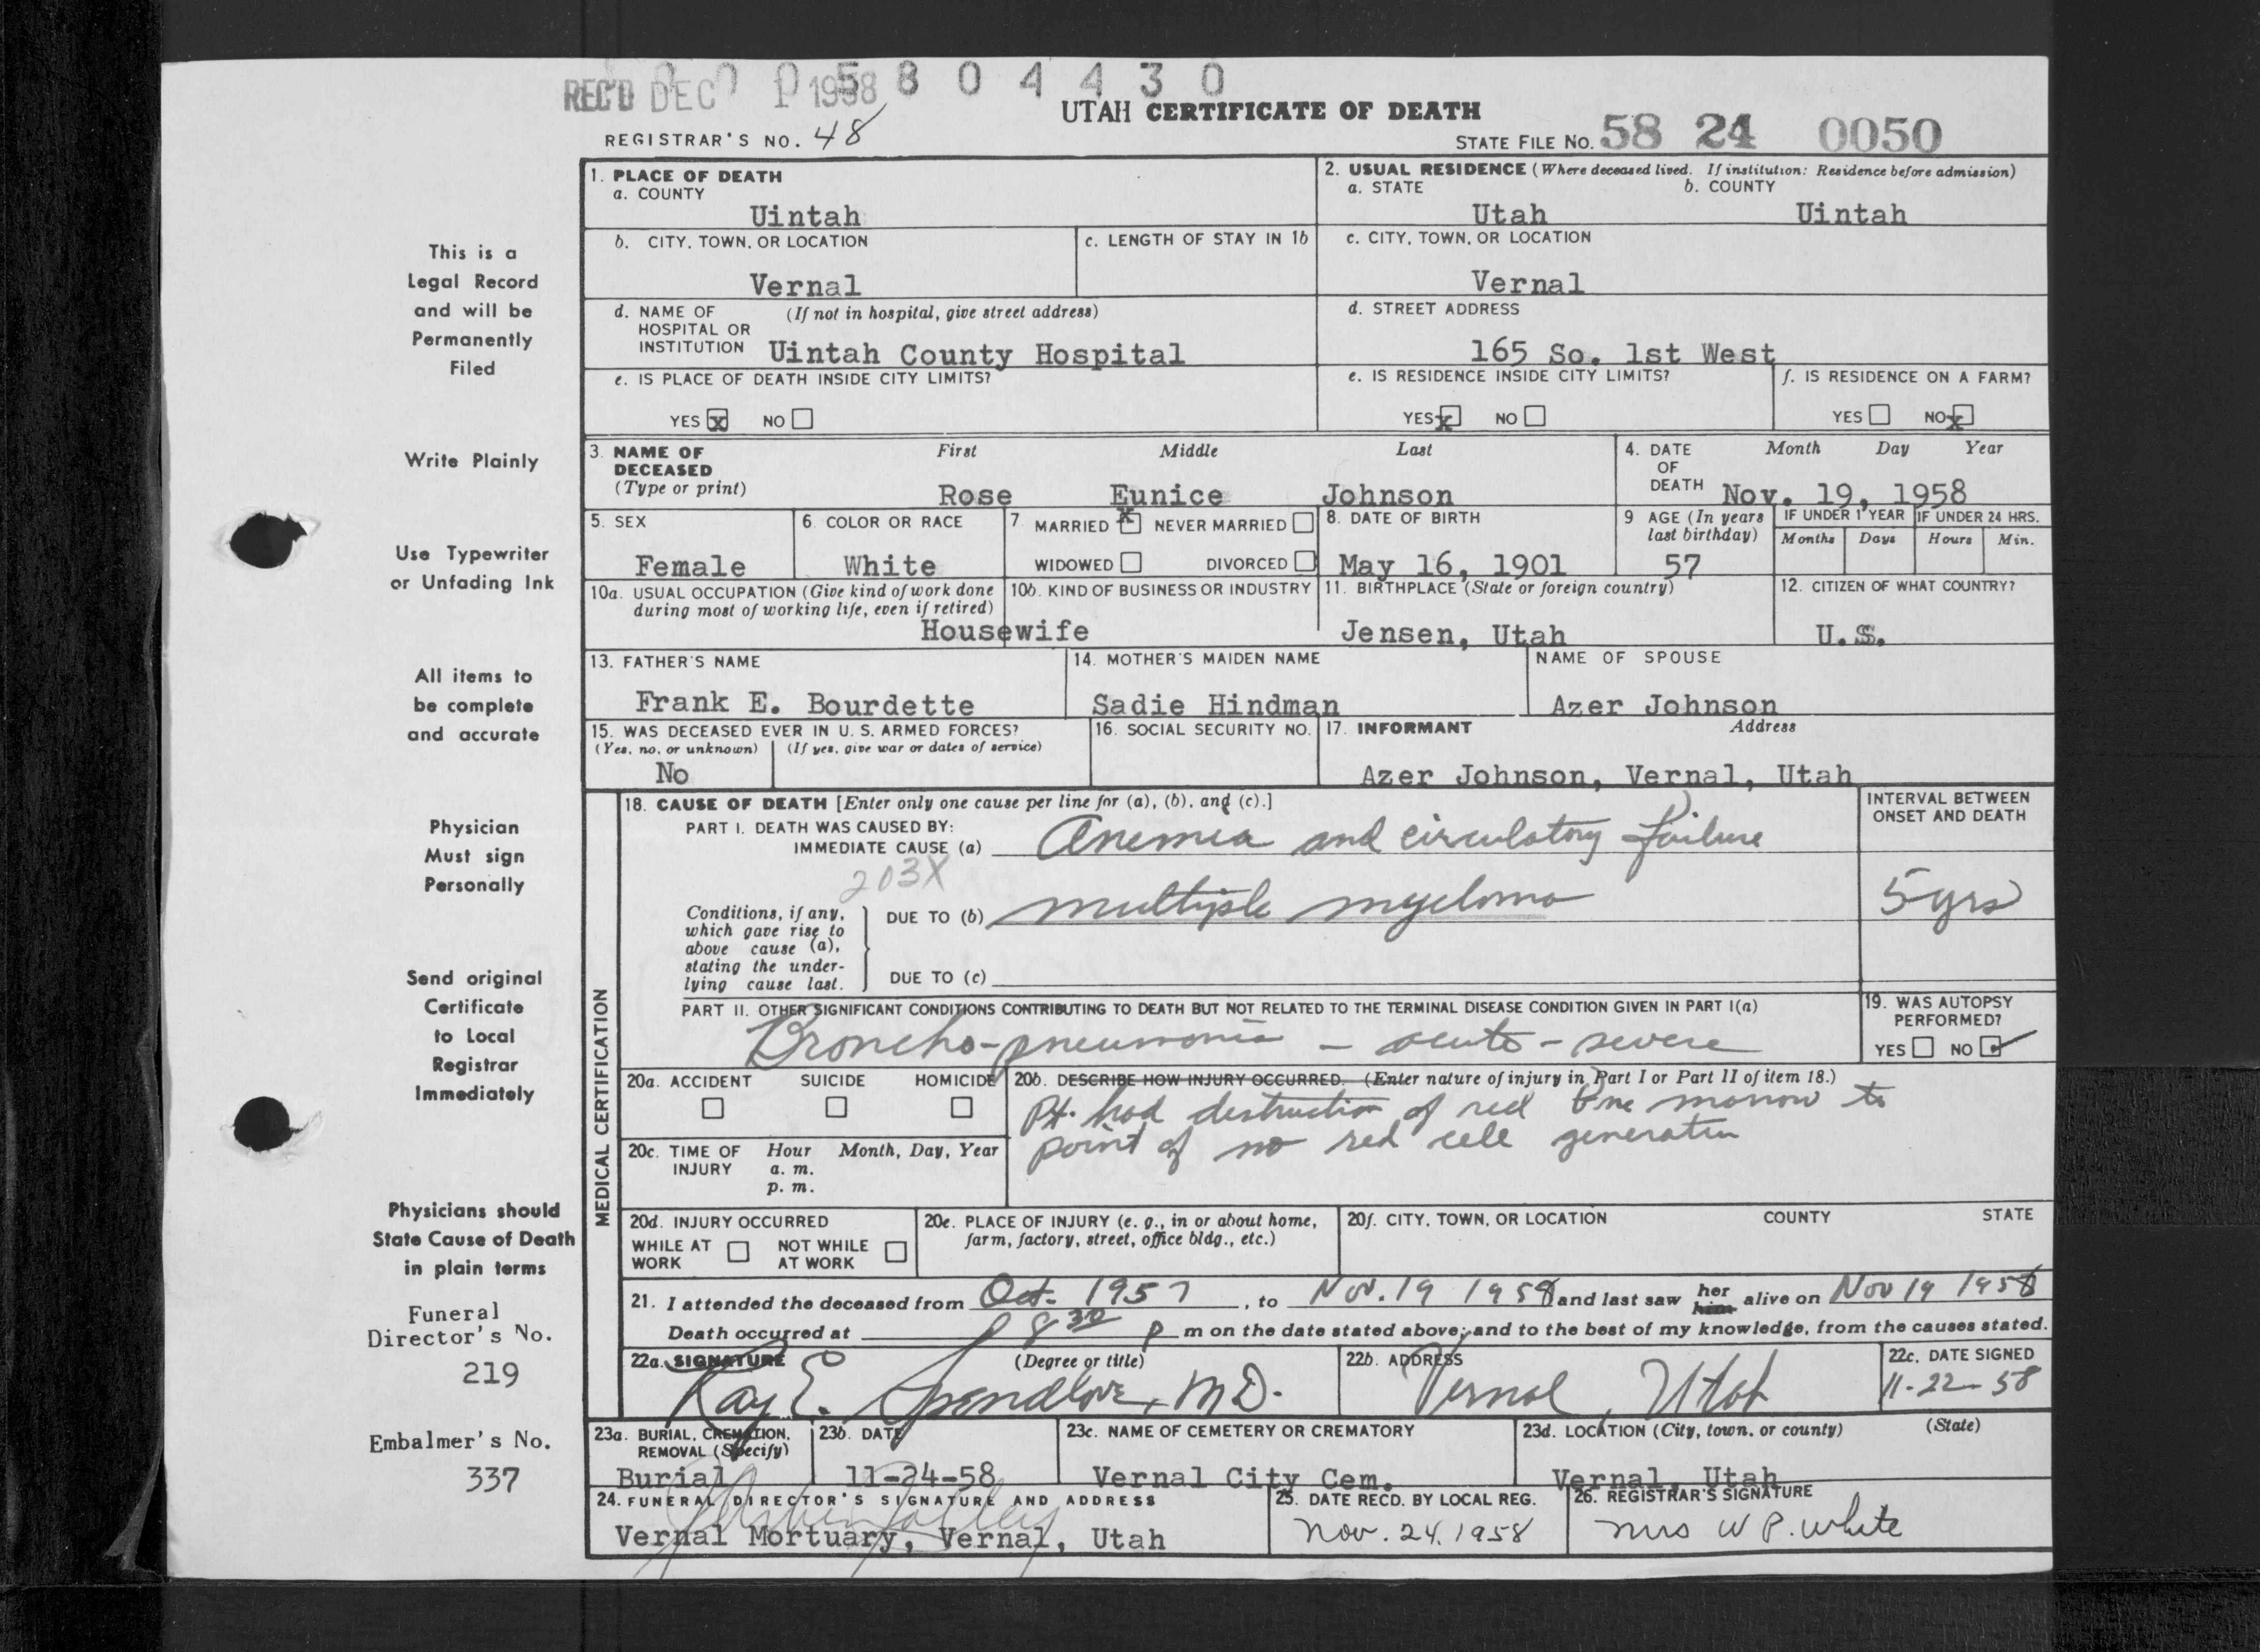 REC'D DEC 1 1958
0 0 0 5 8 0 4 4 3 0
UTAH CERTIFICATE OF DEATH
REGISTRAR'S NO. 48
STATE FILE NO. 58 24 0050
This is a
Legal Record
and will be
Permanently
Filed
Write Plainly
Use Typewriter
or Unfading Ink
All items to
be complete
and accurate
Physician
Must sign
Personally
Send original
Certificate
to Local
Registrar
Immediately
Physicians should
State Cause of Death
in plain terms
Funeral
Director's No.
219
Embalmer's No.
337
1. PLACE OF DEATH
a. COUNTY
Uintah
2. USUAL RESIDENCE (Where deceased lived. If institution: Residence before admission)
a. STATE b. COUNTY
Utah Uintah
b. CITY, TOWN, OR LOCATION
Vernal
c. LENGTH OF STAY IN 1b
c. CITY, TOWN, OR LOCATION
Vernal
d. NAME OF (If not in hospital, give street address)
HOSPITAL OR
INSTITUTION Uintah County Hospital
d. STREET ADDRESS
165 So. 1st West
e. IS PLACE OF DEATH INSIDE CITY LIMITS?
YES x NO
e. IS RESIDENCE INSIDE CITY LIMITS?
YES x NO
f. IS RESIDENCE ON A FARM?
YES NO x
3. NAME OF DECEASED (Type or print)
First Middle Last
Rose Eunice Johnson
4. DATE OF DEATH
Month Day Year
Nov. 19, 1958
5. SEX
Female
6. COLOR OR RACE
White
7. MARRIED x NEVER MARRIED
WIDOWED DIVORCED
8. DATE OF BIRTH
May 16, 1901
9 AGE (In years last birthday)
57
IF UNDER 1 YEAR IF UNDER 24 HRS.
Months Days Hours Min.
10a. USUAL OCCUPATION (Give kind of work done
during most of working life, even if retired)
10b. KIND OF BUSINESS OR INDUSTRY
Housewife
11. BIRTHPLACE (State or foreign country)
Jensen, Utah
12. CITIZEN OF WHAT COUNTRY?
U.S.
13. FATHER'S NAME
Frank E. Bourdette
14. MOTHER'S MAIDEN NAME
Sadie Hindman
NAME OF SPOUSE
Azer Johnson
15. WAS DECEASED EVER IN U. S. ARMED FORCES?
(Yes, no, or unknown) (If yes, give war or dates of service)
No
16. SOCIAL SECURITY NO.
17. INFORMANT Address
Azer Johnson, Vernal, Utah
MEDICAL CERTIFICATION
18. CAUSE OF DEATH [Enter only one cause per line for (a), (b), and (c).]
INTERVAL BETWEEN
ONSET AND DEATH
PART I. DEATH WAS CAUSED BY:
IMMEDIATE CAUSE (a) Anemia and circulatory failure
203X
Conditions, if any,
which gave rise to
above cause (a),
stating the under-
lying cause last.
DUE TO (b) multiple myeloma 5 yrs
DUE TO (c)
PART II. OTHER SIGNIFICANT CONDITIONS CONTRIBUTING TO DEATH BUT NOT RELATED TO THE TERMINAL DISEASE CONDITION GIVEN IN PART I(a)
Broncho-pneumonia - acute - severe
19. WAS AUTOPSY
PERFORMED?
YES NO ✓
20a. ACCIDENT SUICIDE HOMICIDE
20b. DESCRIBE HOW INJURY OCCURRED. (Enter nature of injury in Part I or Part II of item 18.)
Pt. had destruction of red bone marrow to
point of no red cell generation
20c. TIME OF INJURY
Hour Month, Day, Year
a. m.
p. m.
20d. INJURY OCCURRED
WHILE AT WORK NOT WHILE AT WORK
20e. PLACE OF INJURY (e. g., in or about home,
farm, factory, street, office bldg., etc.)
20f. CITY, TOWN, OR LOCATION COUNTY STATE
21. I attended the deceased from Oct. 1957, to Nov. 19 1958 and last saw her him alive on Nov 19 1958
Death occurred at 8 30 p m on the date stated above; and to the best of my knowledge, from the causes stated.
22a. SIGNATURE (Degree or title)
Ray E. Spendlove, M.D.
22b. ADDRESS
Vernal, Utah
22c. DATE SIGNED
11-22-58
23a. BURIAL, CREMATION,
REMOVAL (Specify)
Burial
23b. DATE
11-24-58
23c. NAME OF CEMETERY OR CREMATORY
Vernal City Cem.
23d. LOCATION (City, town, or county) (State)
Vernal, Utah
24. FUNERAL DIRECTOR'S SIGNATURE AND ADDRESS
Vernal Mortuary, Vernal, Utah
25. DATE RECD. BY LOCAL REG.
Nov. 24, 1958
26. REGISTRAR'S SIGNATURE
Mrs W P. White